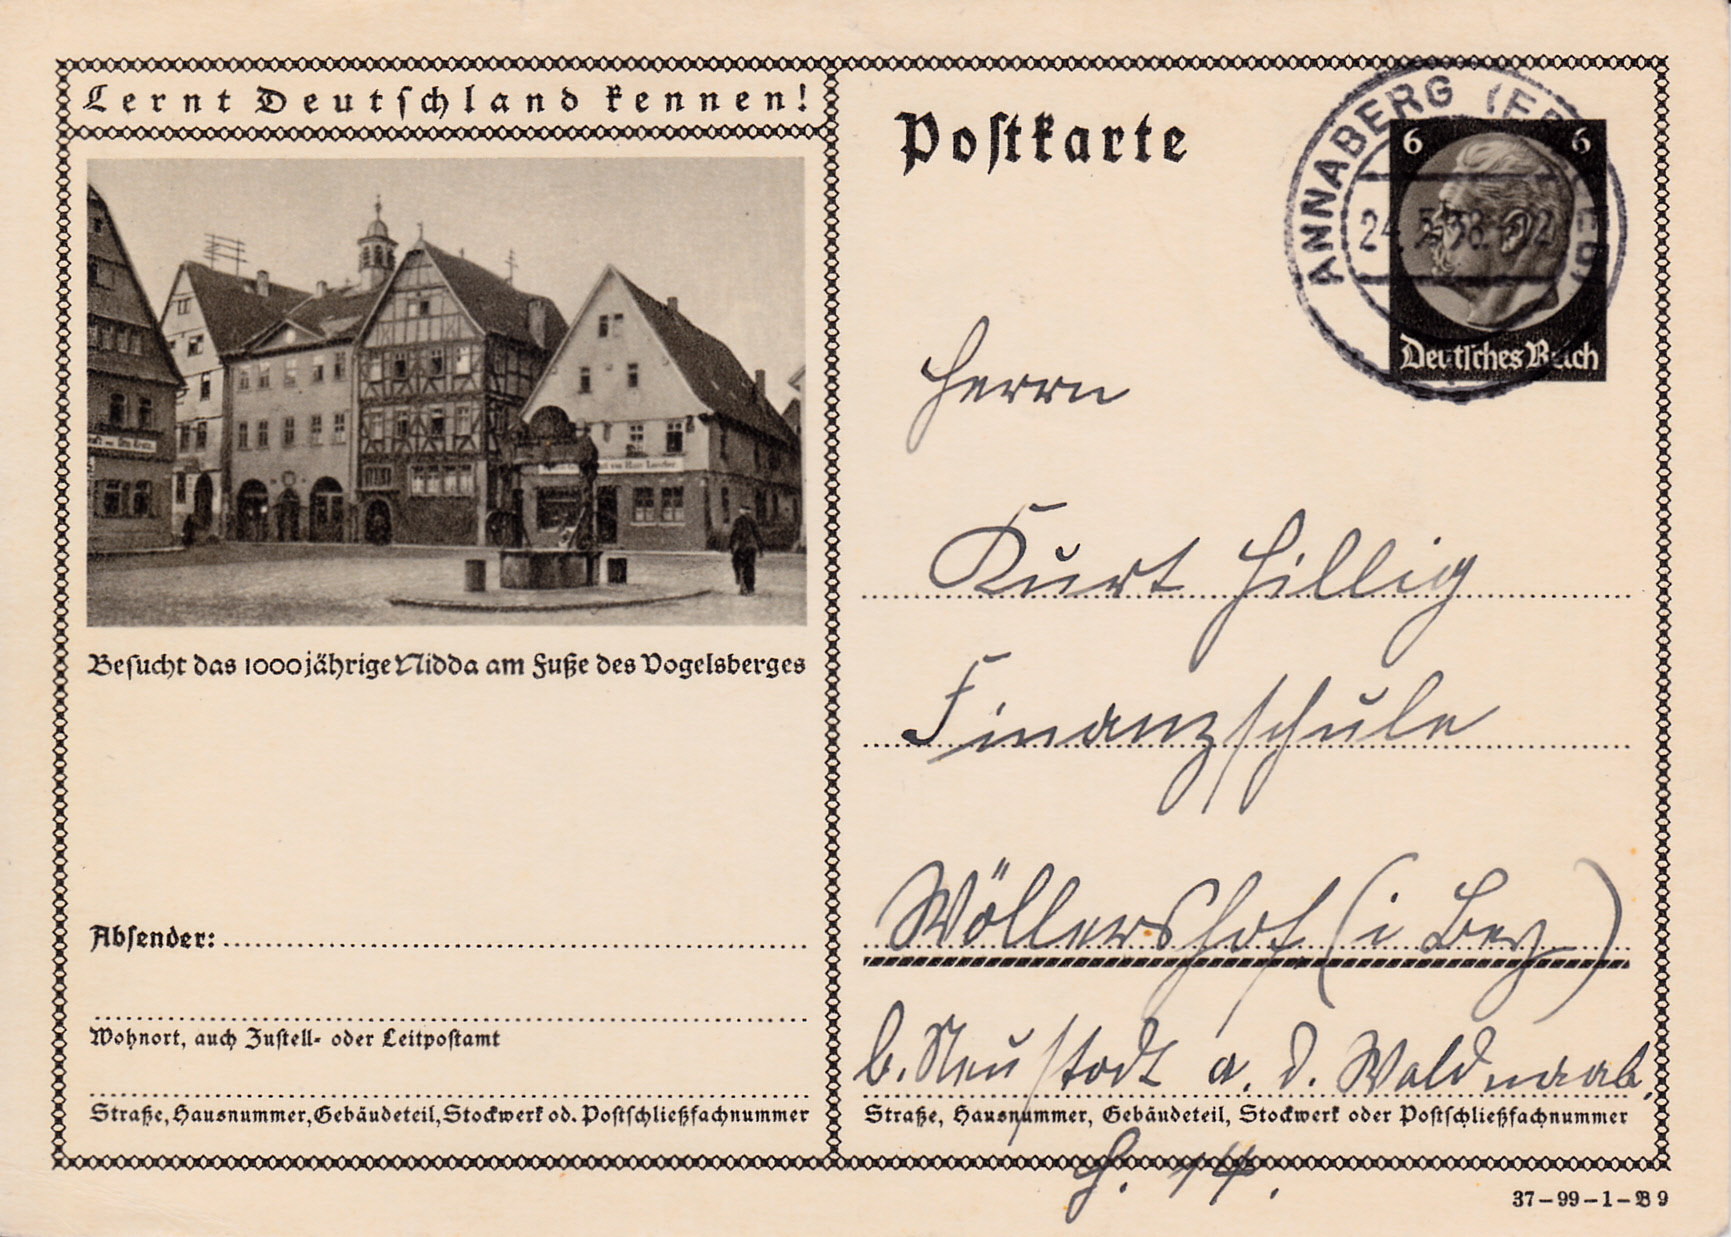 Lernt Deutschland kennen!
Besucht das 1000jährige Nidda am Fuße des Vogelsberges
Absender:
Wohnort, auch Zustell- oder Leitpostamt
Straße, Hausnummer, Gebäudeteil, Stockwerk od. Postschließfachnummer
Postkarte
ANNABERG
24. 5. 38.
6 6
Deutsches Reich
Herrn
Kurt Hillig
Finanzschule
Wöllershof (i Bay)
b. Neustadt a. d. Waldnaab,
Straße, Hausnummer, Gebäudeteil, Stockwerk oder Postschließfachnummer
H. 14.
37-99-1-B9